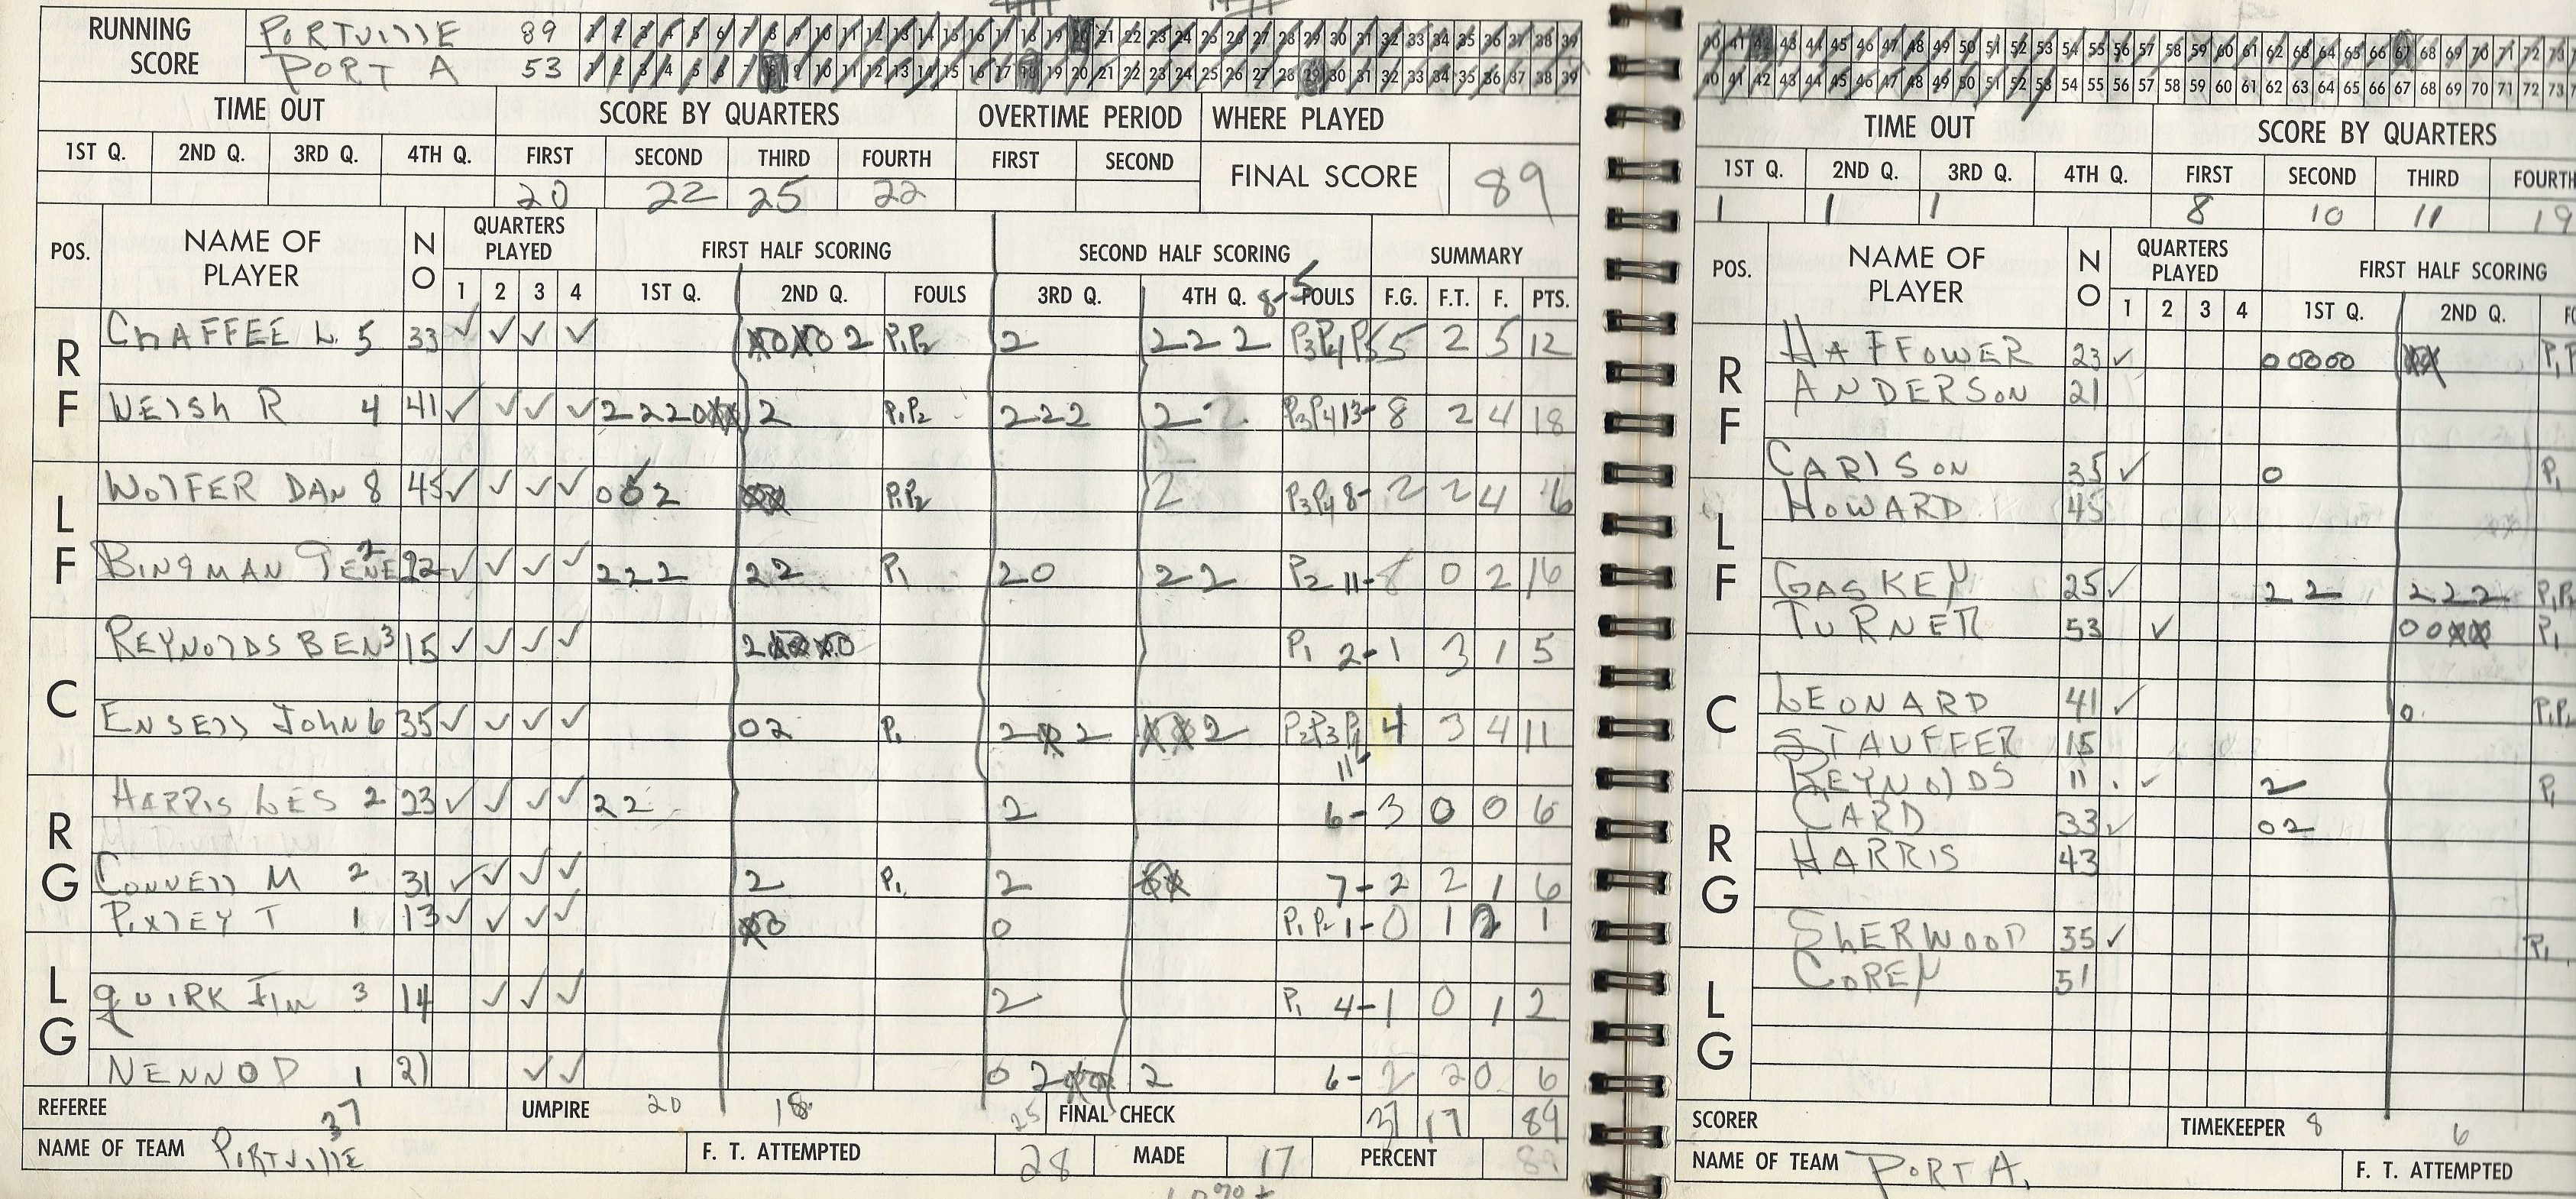 RUNNING SCORE
PORTVILLE 89 1 2 3 4 5 6 7 8 9 10 11 12 13 14 15 16 17 18 19 20 21 22 23 24 25 26 27 28 29 30 31 32 33 34 35 36 37 38 39
PORT A 53 1 2 3 4 5 6 7 8 9 10 11 12 13 14 15 16 17 18 19 20 21 22 23 24 25 26 27 28 29 30 31 32 33 34 35 36 37 38 39
TIME OUT SCORE BY QUARTERS OVERTIME PERIOD WHERE PLAYED
1ST Q. 2ND Q. 3RD Q. 4TH Q. FIRST SECOND THIRD FOURTH FIRST SECOND FINAL SCORE 89
20 22 25 22
POS. NAME OF PLAYER NO QUARTERS PLAYED FIRST HALF SCORING SECOND HALF SCORING SUMMARY
1 2 3 4 1ST Q. 2ND Q. FOULS 3RD Q. 4TH Q. 8-5 FOULS F.G. F.T. F. PTS.
RF
CHAFFEE L 5 33 ✓ ✓ ✓ ✓ 2 P1P2 2 2 2 2 P3P4P5 5 2 5 12
WELSH R 4 41 ✓ ✓ ✓ ✓ 2 2 2 0 2 P1P2 2 2 2 2 P3P4 13- 8 2 4 18
LF
WOLFER DAN 8 45 ✓ ✓ ✓ ✓ 0 0 2 P1P2 2 P3P4 8- 2 2 4 6
BINGMAN GENE 2 22 ✓ ✓ ✓ ✓ 2 2 2 2 2 P1 2 0 2 2 P2 11- 8 0 2 16
C
REYNOLDS BEN 3 15 ✓ ✓ ✓ ✓ 2 P1 2- 1 3 1 5
ENSELL JOHN 6 35 ✓ ✓ ✓ ✓ 0 2 P1 2 2 2 P2P3P4 11- 4 3 4 11
RG
HARRIS LES 2 23 ✓ ✓ ✓ ✓ 2 2 2 6- 3 0 0 6
CONNELL M 2 31 ✓ ✓ ✓ ✓ 2 P1 2 7- 2 2 1 6
PIXLEY T 1 13 ✓ ✓ ✓ ✓ 0 P1P2 1- 0 1 2 1
LG
QUIRK JIM 3 14 ✓ ✓ ✓ 2 P1 4- 1 0 1 2
NENNO P 1 21 ✓ ✓ 0 2 2 6- 2 2 0 6
REFEREE 37 UMPIRE 20 18 25 FINAL CHECK 37 17 89
NAME OF TEAM PORTVILLE F. T. ATTEMPTED 28 MADE 17 PERCENT 89
40 41 42 43 44 45 46 47 48 49 50 51 52 53 54 55 56 57 58 59 60 61 62 63 64 65 66 67 68 69 70 71 72 73
40 41 42 43 44 45 46 47 48 49 50 51 52 53 54 55 56 57 58 59 60 61 62 63 64 65 66 67 68 69 70 71 72 73
TIME OUT SCORE BY QUARTERS
1ST Q. 2ND Q. 3RD Q. 4TH Q. FIRST SECOND THIRD FOURTH
1 1 1 8 10 11 19
POS. NAME OF PLAYER NO QUARTERS PLAYED FIRST HALF SCORING
1 2 3 4 1ST Q. 2ND Q.
RF
HAFFOWER 23 ✓ 0 0 0 0 0
ANDERSON 21
CARLSON 35 ✓ 0 P1
LF
HOWARD 45
GASKEY 25 ✓ 2 2 2 2 2 P1P2
TURNER 53 ✓ 0 0 P1
C
LEONARD 41 ✓ 0 P1P2
STAUFFER 15
REYNOLDS 11 ✓ 2 P1
RG
CARD 33 ✓ 0 2
HARRIS 43
SHERWOOD 55 ✓ P1
LG
COREY 51
SCORER TIMEKEEPER 8 6
NAME OF TEAM PORT A. F. T. ATTEMPTED